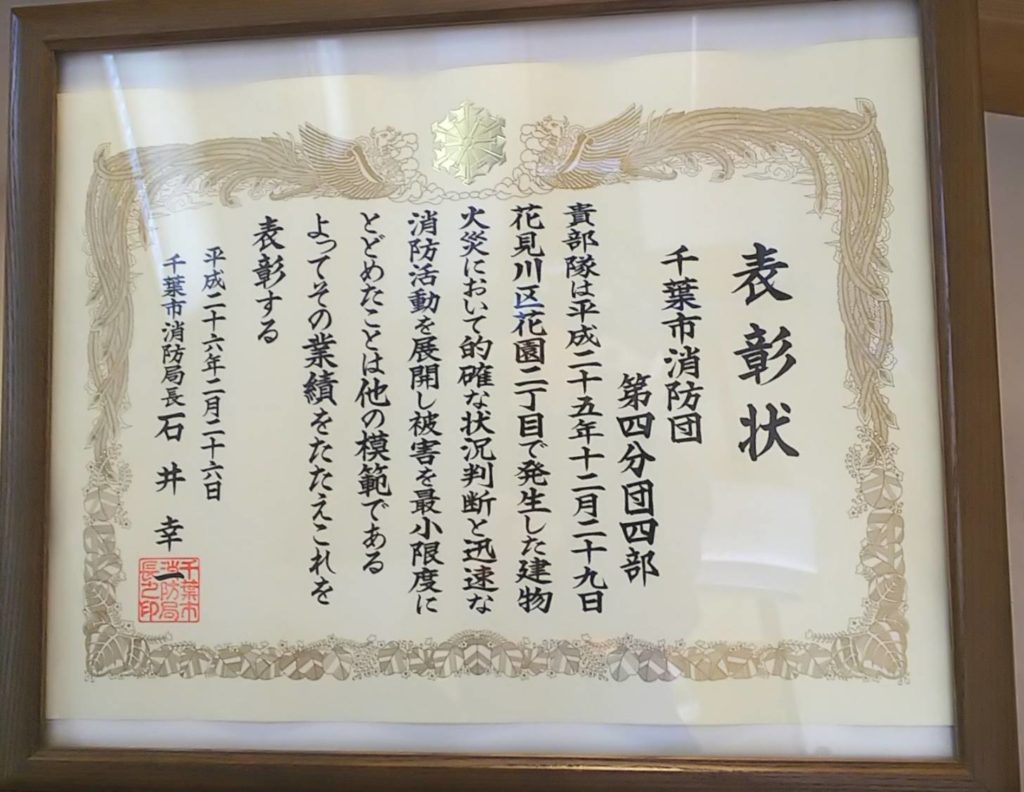 表彰状
千葉市消防団
第四分団四部
貴部隊は平成二十五年十二月二十九日
花見川区花園二丁目で発生した建物
火災において的確な状況判断と迅速な
消防活動を展開し被害を最小限度に
とどめたことは他の模範である
よってその業績をたたえこれを
表彰する
平成二十六年二月二十六日
千葉市消防局長 石井幸一
千葉市
消防局
長之印